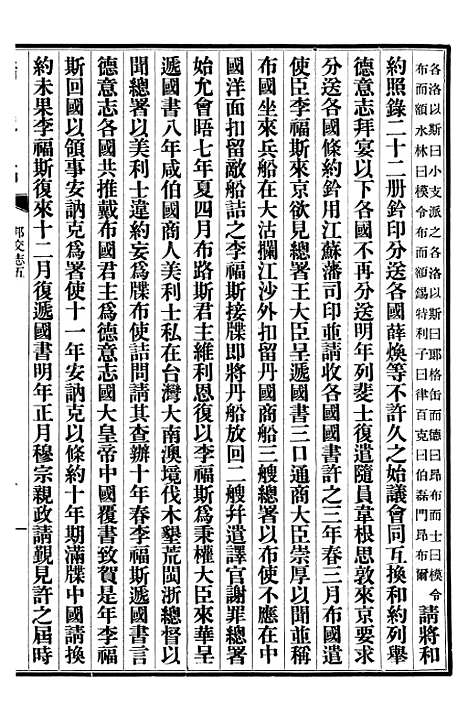 各洛以斯曰小支派之各洛以斯曰耶格缶而德曰昂布而士曰模令
布而額水林曰模令布而額錫特利子曰律百克曰伯磊門昂布爾
請將和
約照錄二十二册鈐印分送各國薛煥等不許久之始議會同互換和約列舉
德意志拜宴以下各國不再分送明年列斐士復遣隨員韋根思敦來京要求
分送各國條約鈐用江蘇藩司印並請收各國國書許之三年春三月布國遣
使臣李福斯來京欲見總署王大臣呈遞國書三口通商大臣崇厚以聞並稱
布國坐來兵船在大沽攔江沙外扣留丹國商船三艘總署以布使不應在中
國洋面扣留敵船詰之李福斯接牒即將丹船放回二艘幷遣譯官謝罪總署
始允會晤七年夏四月布路斯君主維利恩復以李福斯爲秉權大臣來華呈
遞國書八年咸伯國商人美利士私在台灣大南澳境伐木墾荒閩浙總督以
聞總署以美利士違約妄爲牒布使詰問請其查辦十年春李福斯遞國書言
德意志各國共推戴布國君主爲德意志國大皇帝中國覆書致賀是年李福
斯回國以領事安訥克爲署使十一年安訥克以條約十年期滿牒中國請換
約未果李福斯復來十二月復遞國書明年正月穆宗親政請覲見許之屆時
邦交志五
一